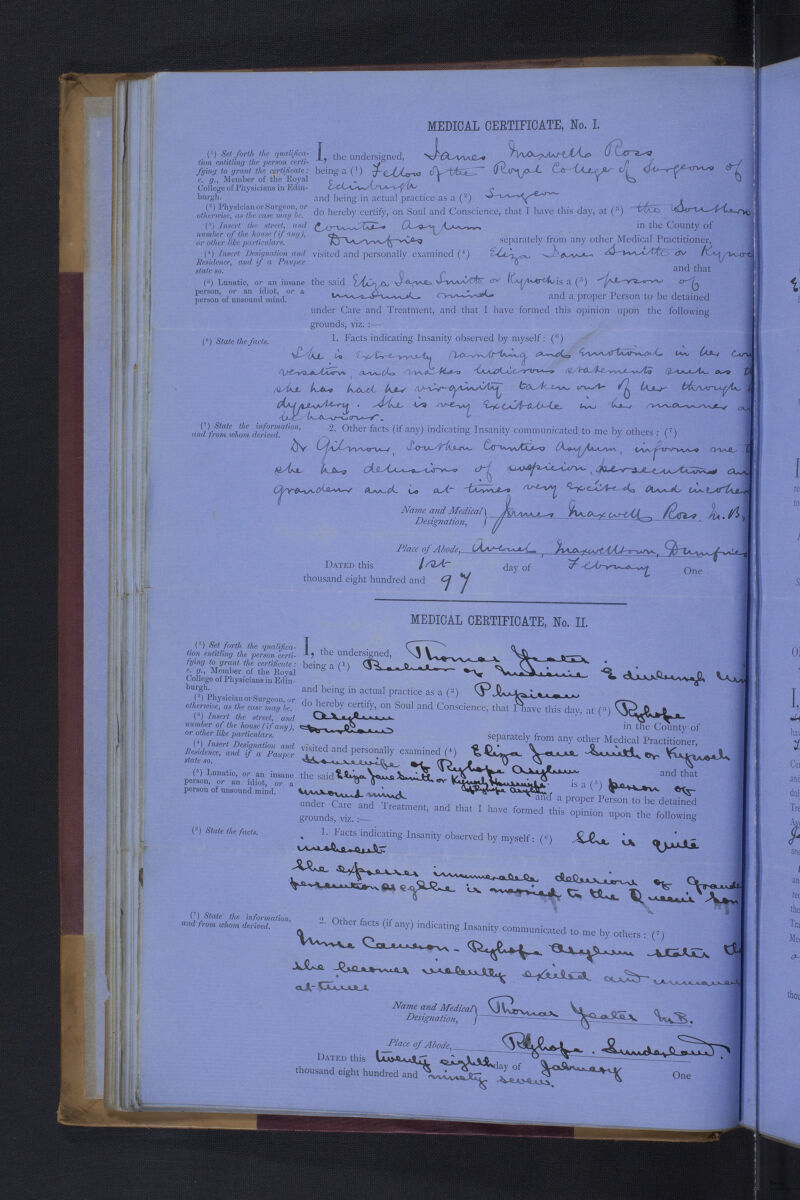 MEDICAL CERTIFICATE, No. I.
(¹) Set forth the qualifica-
tion entitling the person certi-
fying to grant the certificate:
e. g., Member of the Royal
College of Physicians in Edin-
burgh.
(²) Physician or Surgeon, or
otherwise, as the case may be.
(³) Insert the street, and
number of the house (if any),
or other like particulars.
(⁴) Insert Designation and
Residence, and if a Pauper
state so.
(⁵) Lunatic, or an insane
person, or an idiot, or a
person of unsound mind.
I, the undersigned, James Maxwell Ross
being a (¹) Fellow of the Royal College of Surgeons of
Edinburgh
and being in actual practice as a (²) Surgeon
do hereby certify, on Soul and Conscience, that I have this day, at (³) the Southern
Counties Asylum in the County of
Dumfries separately from any other Medical Practitioner,
visited and personally examined (⁴) Eliza Jane Smith or Kynoc
and that
the said Eliza Jane Smith or Kynoch is a (⁵) person of
unsound mind and a proper Person to be detained
under Care and Treatment, and that I have formed this opinion upon the following
grounds, viz. :—
(⁶) State the facts.
1. Facts indicating Insanity observed by myself: (⁶)
She is extremely rambling and emotional in her con
versation, and makes ludicrous statements such as th
she has had her virginity taken out of her through
dysentery. She is very excitable in her manner a
behaviour.
(⁷) State the information,
and from whom derived.
2. Other facts (if any) indicating Insanity communicated to me by others: (⁷)
Dr Gilmour, Southern Counties Asylum, informs me t
she has delusions of suspicion, persecution an
grandeur and is at times very excited and incoher
Name and Medical Designation, James Maxwell Ross, M.B,
Place of Abode, Avenel, Maxwelltown, Dumfries
DATED this 1st day of February One
thousand eight hundred and 97
MEDICAL CERTIFICATE, No. II.
(¹) Set forth the qualifica-
tion entitling the person certi-
fying to grant the certificate:
e. g., Member of the Royal
College of Physicians in Edin-
burgh.
(²) Physician or Surgeon, or
otherwise, as the case may be.
(³) Insert the street, and
number of the house (if any),
or other like particulars.
(⁴) Insert Designation and
Residence, and if a Pauper
state so.
(⁵) Lunatic, or an insane
person, or an idiot, or a
person of unsound mind.
I, the undersigned, Thomas Yeates.
being a (¹) Bachelor of Medicine Edinburgh Uni
and being in actual practice as a (²) Physician
do hereby certify, on Soul and Conscience, that I have this day, at (³) Ryhope
Asylum in the County of
Durham separately from any other Medical Practitioner,
visited and personally examined (⁴) Eliza Jane Smith or Kynoch
Housewife of Ryhope Asylum and that
the said Eliza Jane Smith or Kynoch, Housewife. is a (⁵) person of
Ryhope Asylum.
unsound mind and a proper Person to be detained
under Care and Treatment, and that I have formed this opinion upon the following
grounds, viz. :—
(⁶) State the facts.
1. Facts indicating Insanity observed by myself: (⁶) She is quite
incoherent
She expresses innumerable delusions of Grande
persecution eg She is married to the Queen's son
(⁷) State the information,
and from whom derived.
2. Other facts (if any) indicating Insanity communicated to me by others: (⁷)
Nurse Cameron – Ryhope Asylum states th
she becomes violently excited and unmanag
at times
Name and Medical Designation, Thomas Yeates M.B.
Place of Abode, Ryhope. Sunderland.
DATED this twenty eighth day of January One
thousand eight hundred and ninety seven.